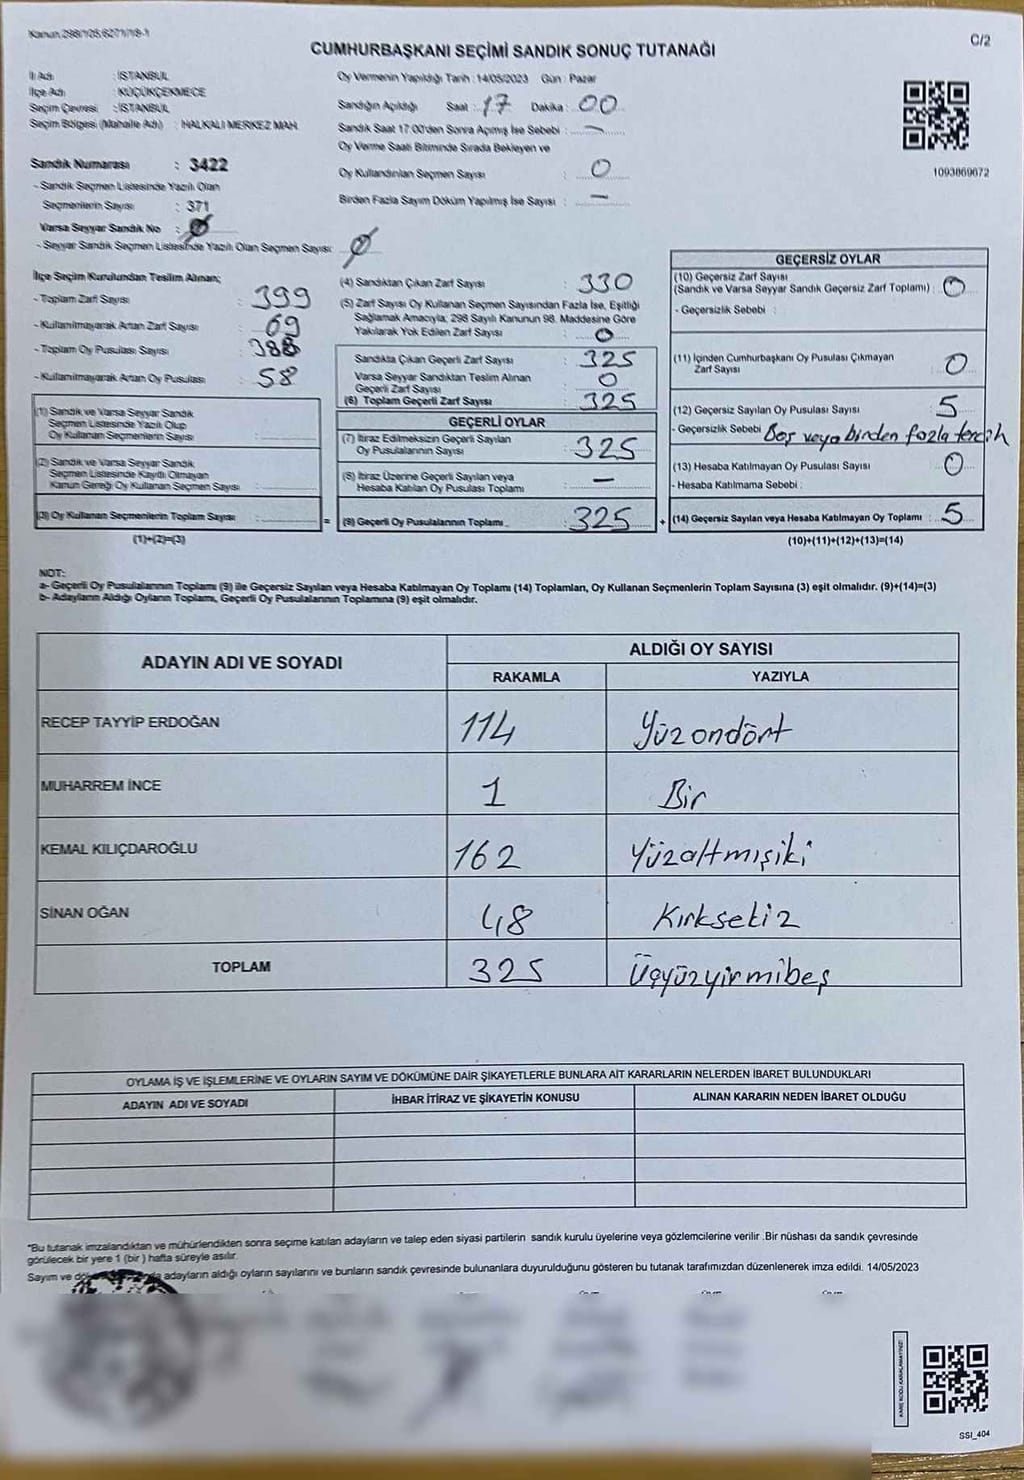 Kanun.298/105,6271/18-1
C/2
CUMHURBAŞKANI SEÇİMİ SANDIK SONUÇ TUTANAĞI
İl Adı : İSTANBUL
İlçe Adı : KÜÇÜKÇEKMECE
Seçim Çevresi : İSTANBUL
Seçim Bölgesi (Mahalle Adı) : HALKALI MERKEZ MAH.
Sandık Numarası : 3422
- Sandık Seçmen Listesinde Yazılı Olan
Seçmenlerin Sayısı : 371
Varsa Seyyar Sandık No : 0
- Seyyar Sandık Seçmen Listesinde Yazılı Olan Seçmen Sayısı: 0
Oy Vermenin Yapıldığı Tarih : 14/05/2023 Gün : Pazar
Sandığın Açıldığı Saat : 17 Dakika : 00
Sandık Saat 17:00'den Sonra Açılmış İse Sebebi : —
Oy Verme Saati Bitiminde Sırada Bekleyen ve
Oy Kullandırılan Seçmen Sayısı : 0
Birden Fazla Sayım Döküm Yapılmış İse Sayısı : —
1093869672
İlçe Seçim Kurulundan Teslim Alınan;
- Toplam Zarf Sayısı : 399
- Kullanılmayarak Artan Zarf Sayısı : 69
- Toplam Oy Pusulası Sayısı : 388
- Kullanılmayarak Artan Oy Pusulası : 58
(1) Sandık ve Varsa Seyyar Sandık
Seçmen Listesinde Yazılı Olup
Oy Kullanan Seçmenlerin Sayısı :
(2) Sandık ve Varsa Seyyar Sandık
Seçmen Listesinde Kayıtlı Olmayan
Kanun Gereği Oy Kullanan Seçmen Sayısı :
(3) Oy Kullanan Seçmenlerin Toplam Sayısı :
(1)+(2)=(3)
=
(4) Sandıktan Çıkan Zarf Sayısı : 330
(5) Zarf Sayısı Oy Kullanan Seçmen Sayısından Fazla İse, Eşitliği
Sağlamak Amacıyla; 298 Sayılı Kanunun 98. Maddesine Göre
Yakılarak Yok Edilen Zarf Sayısı : 0
Sandıkta Çıkan Geçerli Zarf Sayısı : 325
Varsa Seyyar Sandıktan Teslim Alınan
Geçerli Zarf Sayısı : 0
(6) Toplam Geçerli Zarf Sayısı : 325
GEÇERLİ OYLAR
(7) İtiraz Edilmeksizin Geçerli Sayılan
Oy Pusulalarının Sayısı : 325
(8) İtiraz Üzerine Geçerli Sayılan veya
Hesaba Katılan Oy Pusulası Toplamı : —
(9) Geçerli Oy Pusulalarının Toplamı : 325
+
GEÇERSİZ OYLAR
(10) Geçersiz Zarf Sayısı
(Sandık ve Varsa Seyyar Sandık Geçersiz Zarf Toplamı) : 0
- Geçersizlik Sebebi :
(11) İçinden Cumhurbaşkanı Oy Pusulası Çıkmayan
Zarf Sayısı : 0
(12) Geçersiz Sayılan Oy Pusulası Sayısı : 5
- Geçersizlik Sebebi Boş veya birden fazla tercih
(13) Hesaba Katılmayan Oy Pusulası Sayısı : 0
- Hesaba Katılmama Sebebi :
(14) Geçersiz Sayılan veya Hesaba Katılmayan Oy Toplamı : 5
(10)+(11)+(12)+(13)=(14)
NOT:
a- Geçerli Oy Pusulalarının Toplamı (9) ile Geçersiz Sayılan veya Hesaba Katılmayan Oy Toplamı (14) Toplamları, Oy Kullanan Seçmenlerin Toplam Sayısına (3) eşit olmalıdır. (9)+(14)=(3)
b- Adayların Aldığı Oyların Toplamı, Geçerli Oy Pusulalarının Toplamına (9) eşit olmalıdır.
ADAYIN ADI VE SOYADI
ALDIĞI OY SAYISI
RAKAMLA YAZIYLA
RECEP TAYYİP ERDOĞAN 114 Yüzondört
MUHARREM İNCE 1 Bir
KEMAL KILIÇDAROĞLU 162 Yüzaltmışiki
SİNAN OĞAN 48 Kırksekiz
TOPLAM 325 Üçyüzyirmibeş
OYLAMA İŞ VE İŞLEMLERİNE VE OYLARIN SAYIM VE DÖKÜMÜNE DAİR ŞİKAYETLERLE BUNLARA AİT KARARLARIN NELERDEN İBARET BULUNDUKLARI
ADAYIN ADI VE SOYADI İHBAR İTİRAZ VE ŞİKAYETİN KONUSU ALINAN KARARIN NEDEN İBARET OLDUĞU
*Bu tutanak imzalandıktan ve mühürlendikten sonra seçime katılan adayların ve talep eden siyasi partilerin sandık kurulu üyelerine veya gözlemcilerine verilir .Bir nüshası da sandık çevresinde
görülecek bir yere 1 (bir ) hafta süreyle asılır.
Sayım ve adayların aldığı oyların sayılarını ve bunların sandık çevresinde bulunanlara duyurulduğunu gösteren bu tutanak tarafımızdan düzenlenerek imza edildi. 14/05/2023
KARE KODU KARALAMAYINIZ!
SSI_404